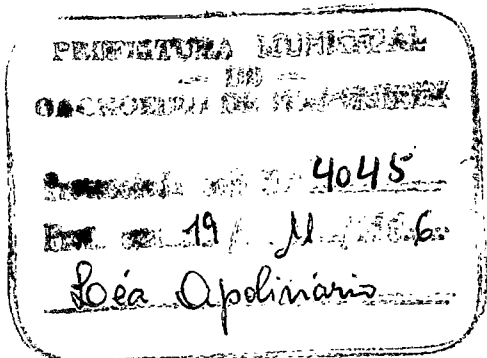 PREFEITURA MUNICIPAL
DE
CACHOEIRO DE ITAPEMIRIM
4045
19 / 11 / 6
Loéa Apolinário